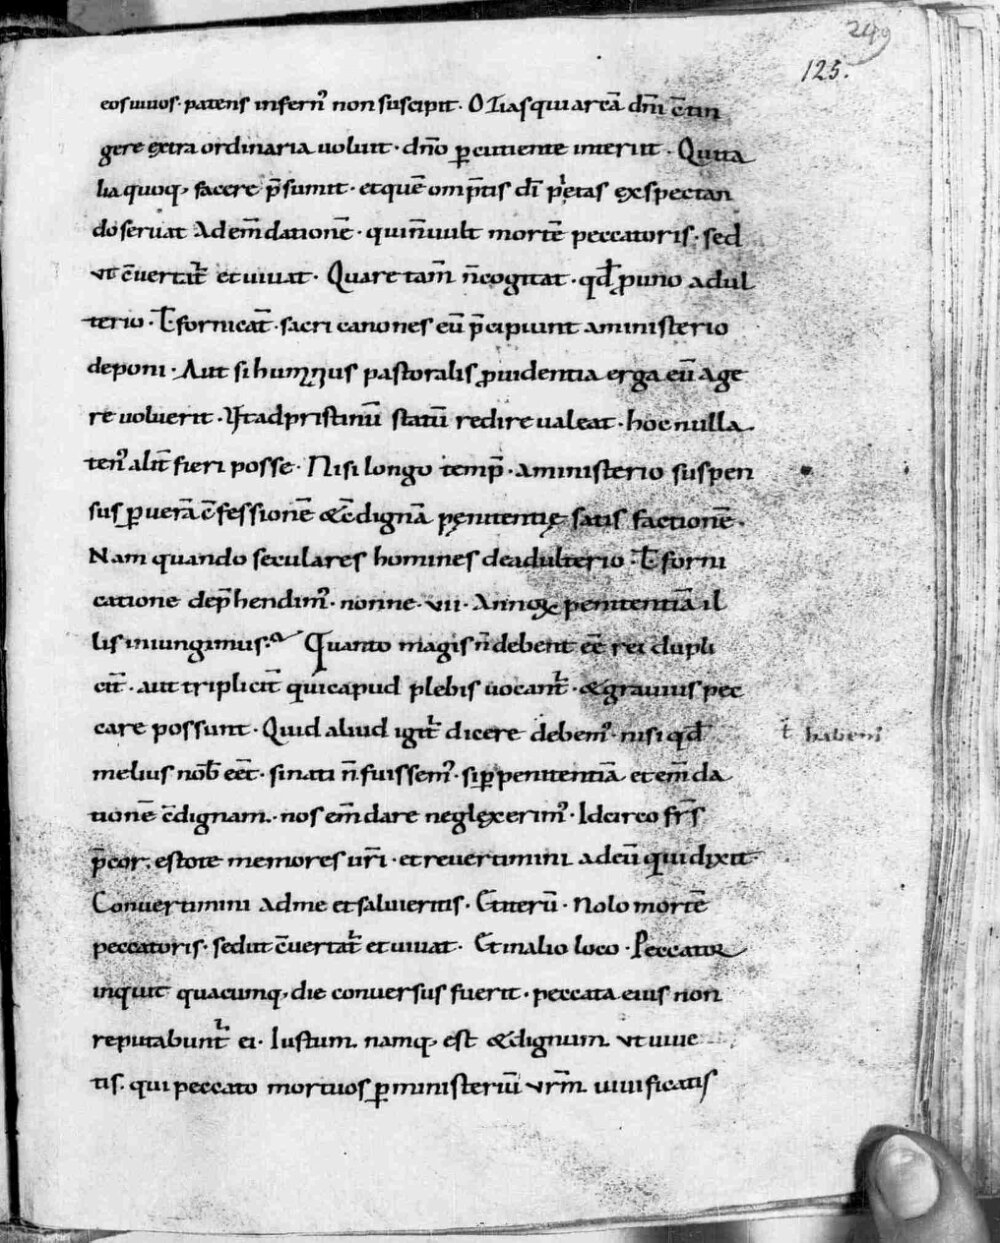 249
125.
eos uiuos · patens infern᾽ non suscipit · OZias qui arcā dm̄ c̄tin
gere extra ordinaria uoluit · dn̄o ꝑcutiente interiit · Qui ita
lia quoq, facere p̄sumit · et quē omp̄tis dī pietas exspectan
do seruat ad em̄datione᷒ · qui n̄ uult mortē peccatoris · sed
ut c̄uertat᷒ et uiuat · Quare tam̄ n̄ cogitat · qđ ꝓ uno adul
terio · ł fornicat̄ · sacri canones eū p̄cipiunt a ministerio
deponi · Aut si humanius pastoralis ꝓuidentia erga eū age
re uoluerit · Vt ad pristinū statū redire ualeat · hoc nulla
ten᾽ alit̄ fieri posse · Nisi longo temp̄ · a ministerio suspen
sus ꝑ uerā c̄fessionē & c̄dignā pęnitentię satisfactionē ·
Nam quando seculares homines de adulterio · ł forni
catione dep̄hendim᾽ · nonne · vii · annoꝝ penitentiā il
lis iniungimus · Quanto magis n̄ debent eē rei dupli
cit̄ · aut triplicit̄ qui capud plebis uocant᷒ · & grauius pec
care possunt · Quid aliud igit᷒ dicere debem᾽ · nisi qđ
ł habem᾽
melius nob̄ eēt · si nati n̄ fuissem᾽ · si ꝑ penitentiā et em̄da
tionē c̄dignam · nos em̄dare neglexerim᾽ · Idcirco fr̄s
p̄cor · estote memores ur̄i · et reuertimini ad eū qui dixit ·
Conuertimini ad me et salui eritis · Et iterū · Nolo mortē
peccatoris · sed ut c̄uertat᷒ et uiuat · Et in alio loco · Peccator
inquit quacumq, die conuersus fuerit · peccata eius non
reputabunt᷒ ei · Iustum namq, est & dignum ut uiue
tis · qui peccato mortuos ꝑ ministeriū vr̄m uiuificatis